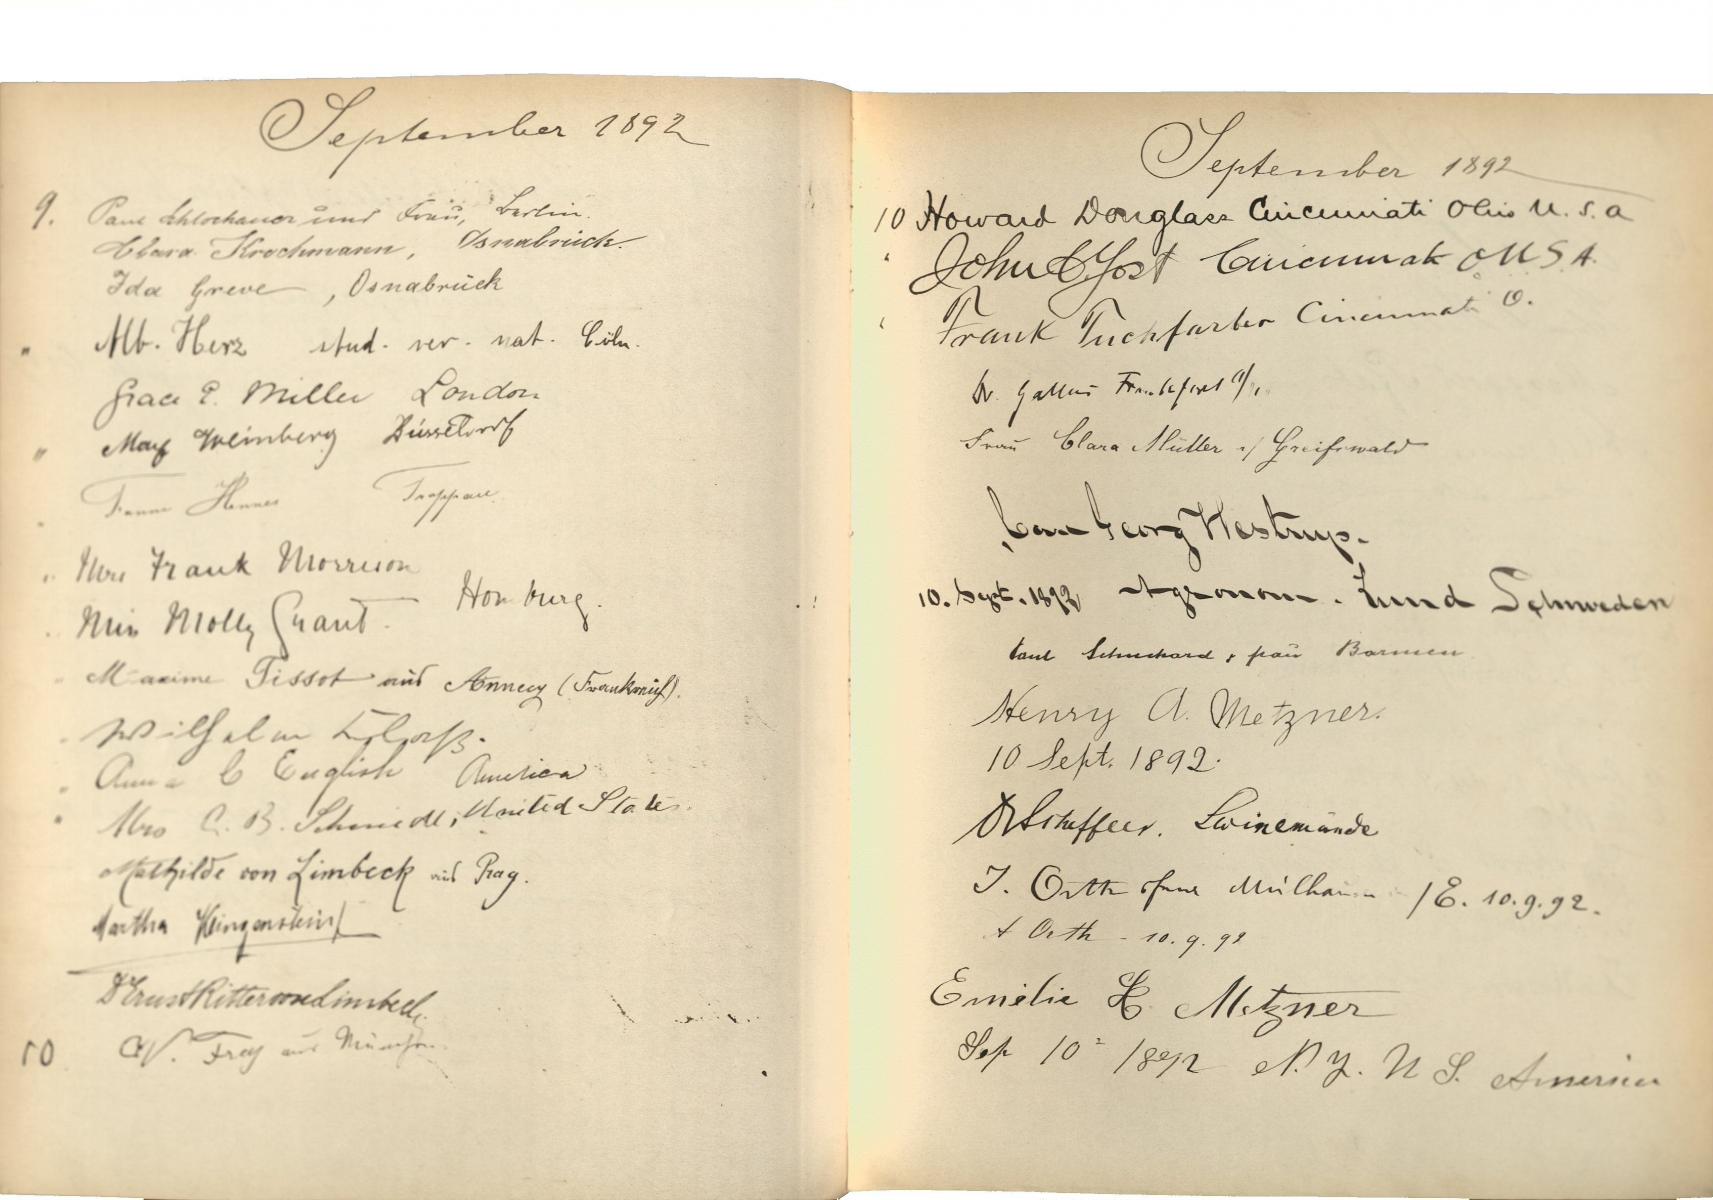 September 1892
9. Paul Schlochauer und Frau, Berlin.
Clara Krochmann, Osnabrück.
Ida Greve, Osnabrück
" Alb. Herz stud. rer. nat. Cöln.
Grace E. Miller London
" Max Weinberg Düsseldorf
" Hennes Troppau
" Mrs Frank Morrison
" Miss Molly Grant. Homburg.
" Maxime Tissot aus Annecy (Frankreich).
" Wilhelm
" Anna C English America
" Mrs C. B. Schmidt, United States.
Mathilde von Limbeck aus Prag.
Martha Klingenstein
Dr Ernst Ritter von Limbeck
10 Frey aus München
September 1892
10 Howard Douglass Cincinnati Ohio U. S. A
" John C Yost Cincinnati O U S A.
" Frank Tuchfarber Cincinnati O.
Dr. Gallus Frankfurt a/
Frau Clara Müller Greifswald
Carl Georg Westrup.
10. Sept. 1892 Agronom. Lund Schweden
Paul Schuchard & Frau Barmen
Henry A. Metzner.
10 Sept. 1892.
Dr Scheffler. Swinemünde
J. Orth Mülhausen /E. 10.9.92.
Orth - 10.9.92
Emélie H. Metzner
Sep 10 1892 N. Y. U S. America